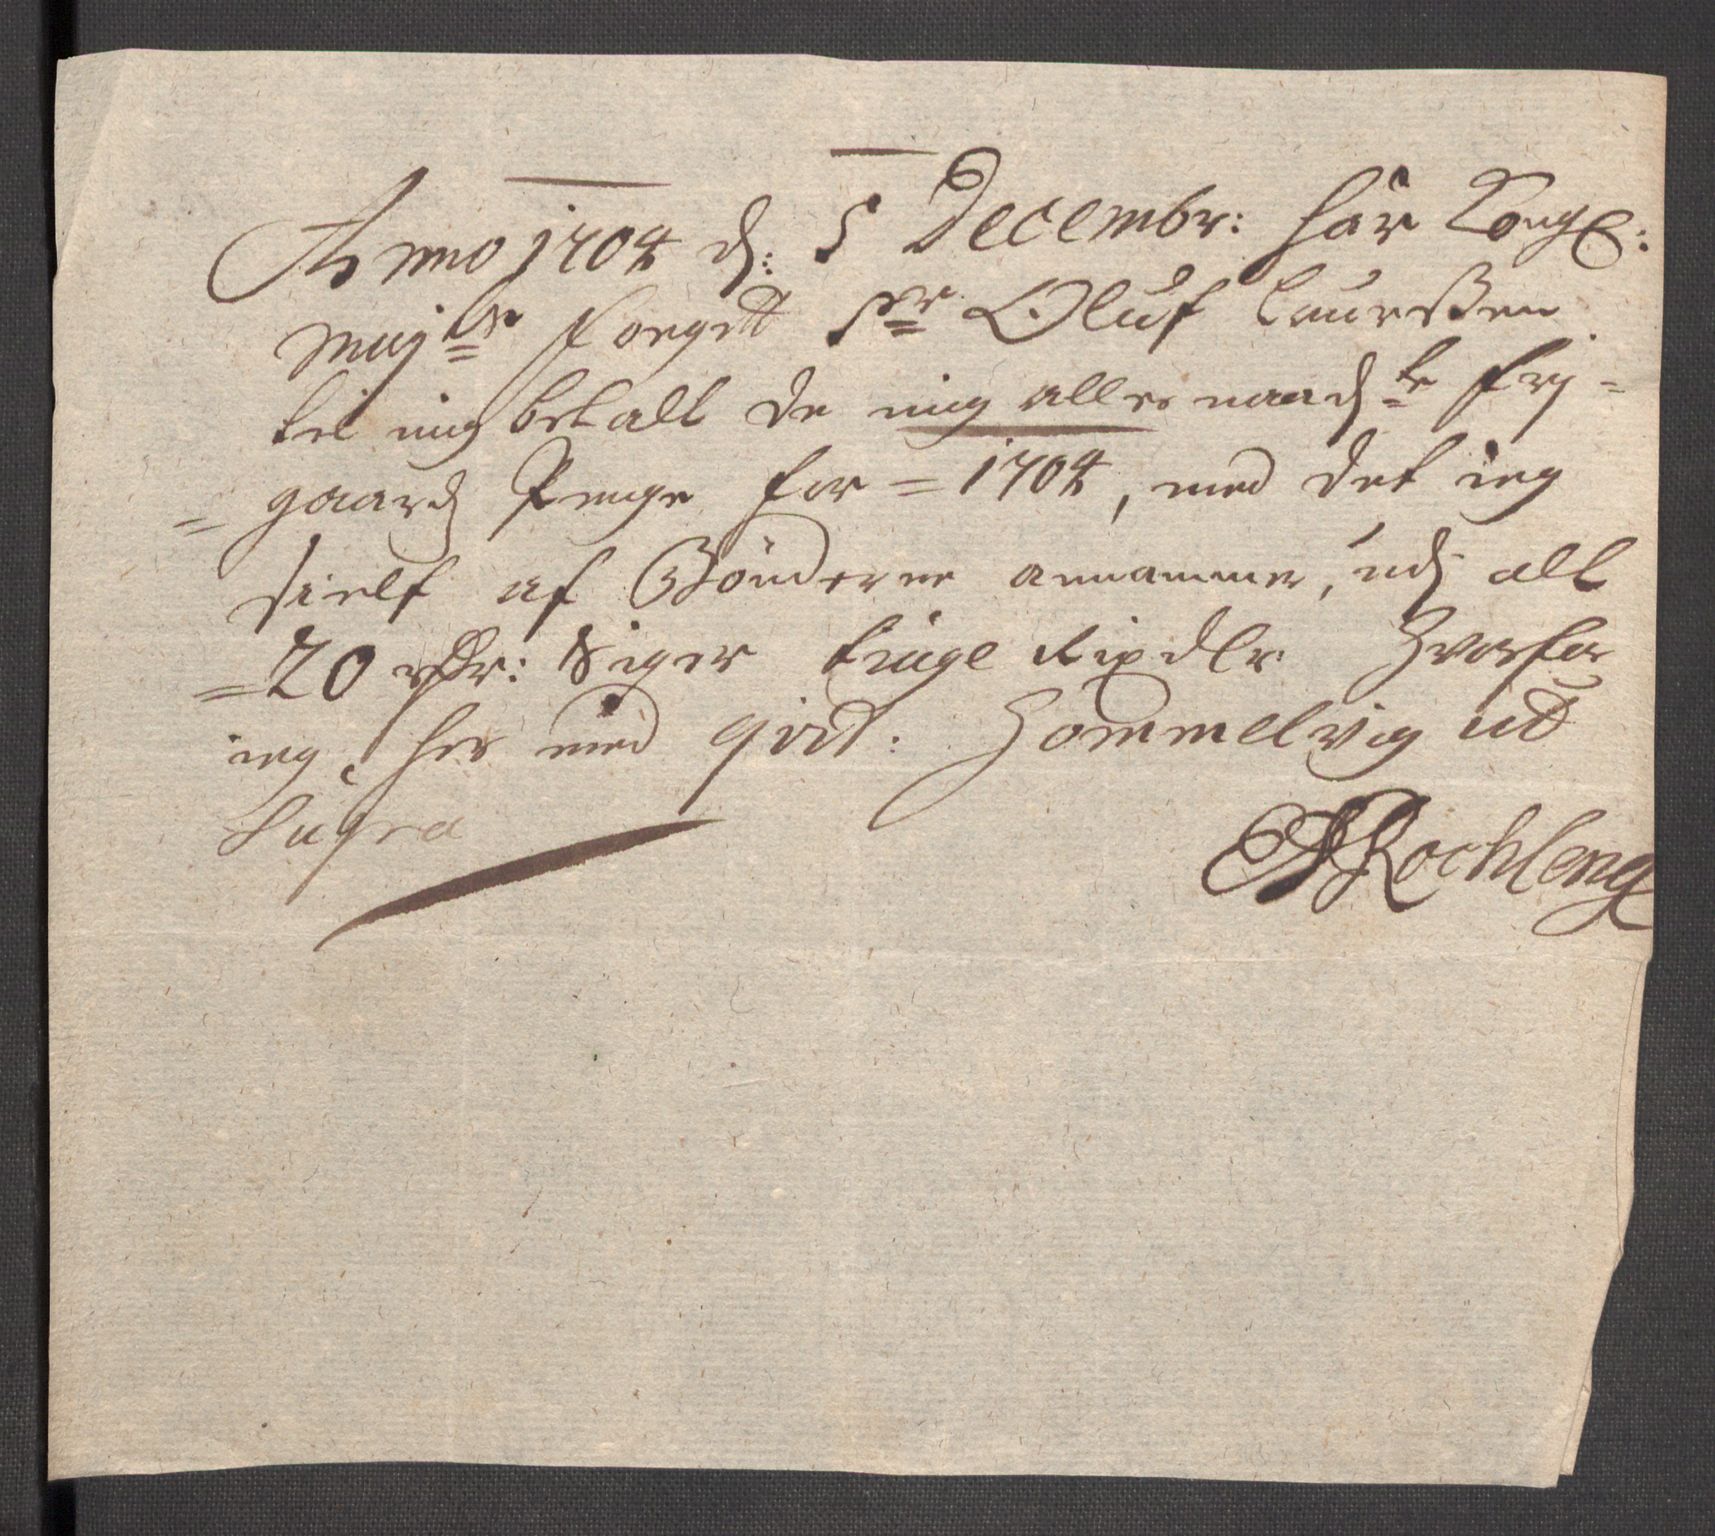 Anno 1704 d: 5 Decembr: har Kongl:
Maj:ts Fougitt Sr. Oluf Laurssen
til mig betalt de mig allernaadste Frj-
gaards Penge for = 1704, med det ieg
sielf af Bønderne annammer, udj alt
= 20 rdr: Siger tiuge Rixdlr Hvorfor
ieg her med qvit: Hommelvig ut
Supra
Rochleng